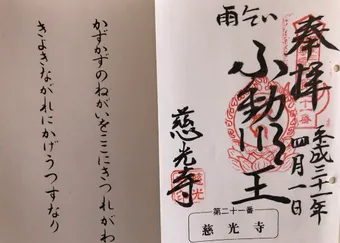 奉拝
平成三十一年
四月一日
雨乞い
ふ動明王
慈光寺
第二十一番
慈光寺
かずかずのねがいをここにきつれがわ
きよきながれにかげうつすなり